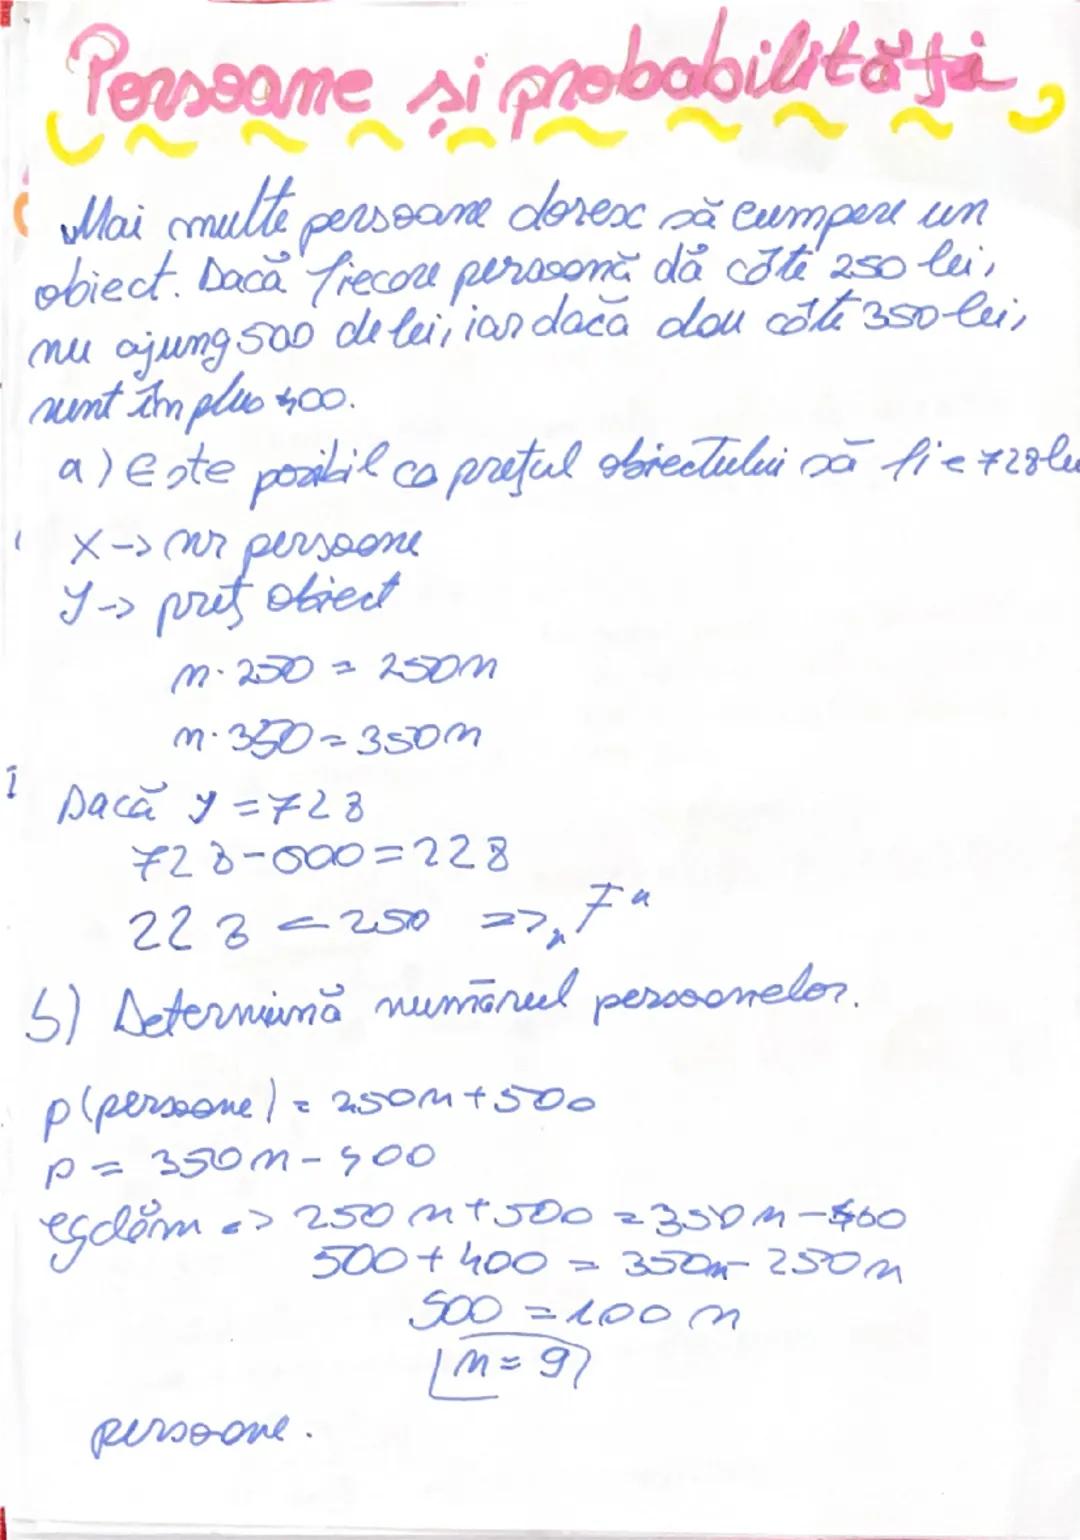 Persoane și probabilități
Mai multe persoane doresc să cumpere un
obiect. Dacă fiecare persoană dă câte 250 lei,
nu ajung 500 de lei, iar dacă dau câte 350 lei,
sunt în plus 400.
a) Este posibil ca prețul obiectului să fie 728 le
X -> nr persoane
Y -> preț obiect
n · 250 = 250n
n · 350 = 350n
Dacă y = 728
728 - 500 = 228
228 < 250 => „F"
b) Determină numărul persoanelor.
p (persoane) = 250n + 500
p = 350n - 400
egalăm => 250n + 500 = 350n - 400
500 + 400 = 350n - 250n
900 = 100n
n = 9
persoane.